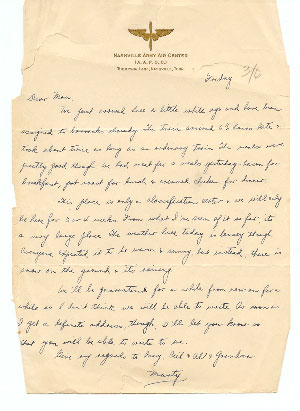 NASHVILLE ARMY AIR CENTER
(A. A. F. C. C.)
THOMPSON LANE, NASHVILLE, TENN.
Sunday
3/6
Dear Mom,
We just arrived here a little while ago and have been
assigned to barracks already. The train arrived 6½ hours late &
took about twice as long as an ordinary train. The meals were
pretty good though we had meat for 3 meals yesterday - bacon for
breakfast, pot roast for lunch, & creamed chicken for dinner.
This place is only a classification center & we will only
be here for 3 or 4 weeks. From what I've seen of it so far, its
a very large place. The weather here today is lousy though.
Everyone expected it to be warm & sunny, but instead, there is
snow on the ground & its raining.
We'll be quarantined for a while from now on for a
while so I don't think we will be able to write. As soon as
I get a definite address, though, I'll let you know so
that you will be able to write to me.
Give my regards to Cecil & Al & Grandma
Marty